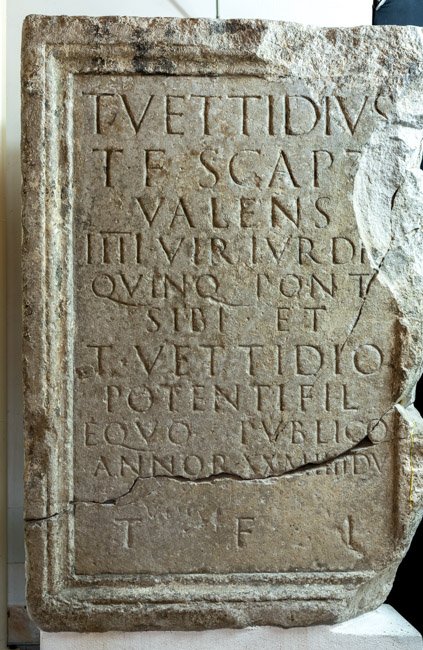 T·VETTIDIVS
T F SCAPT
VALENS
IIII VIR IVRDI
QVINQ PONT
SIBI ET
T·VETTIDIO
POTENTI FIL
EQVO PVBLICO
T F I